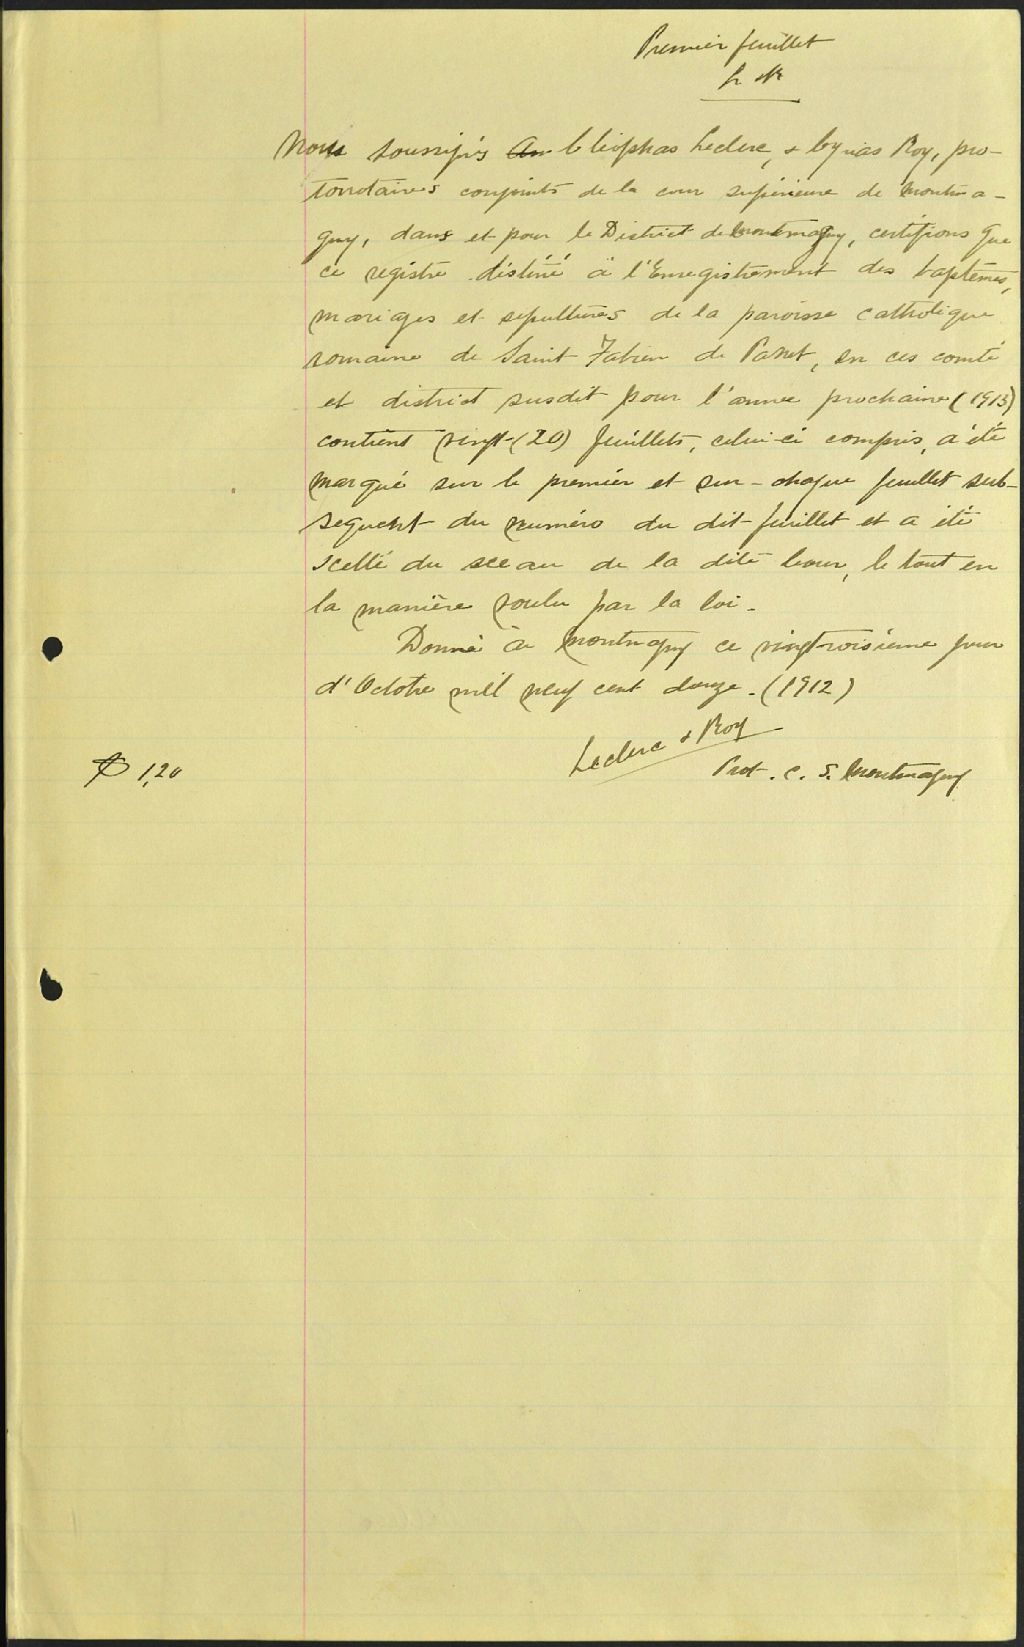 Premier feuillet
L &R
Nous soussignés Cléophas Leclerc, & Cyrias Roy, pro-
tonotaires conjoints de la cour supérieure de Montma-
gny, dans et pour le District de Montmagny, certifions que
ce registre destiné à l'Enregistrement des baptêmes,
mariages et sépultures de la paroisse catholique
romaine de Saint Fabien de Panet, en ces comté
et district susdit pour l'année prochaine (1913)
contient vingt (20) feuillets, celui-ci compris, a été
marqué sur le premier et sur chaque feuillet sub-
séquent du numéro du dit feuillet et a été
scellé du sceau de la dite Cour, le tout en
la manière voulu par la loi.
Donné à Montmagny ce vingtroisième jour
d'Octobre mil neuf cent douze. (1912)
Leclerc & Roy
$ 1,20 Prot. C. S. Montmagny